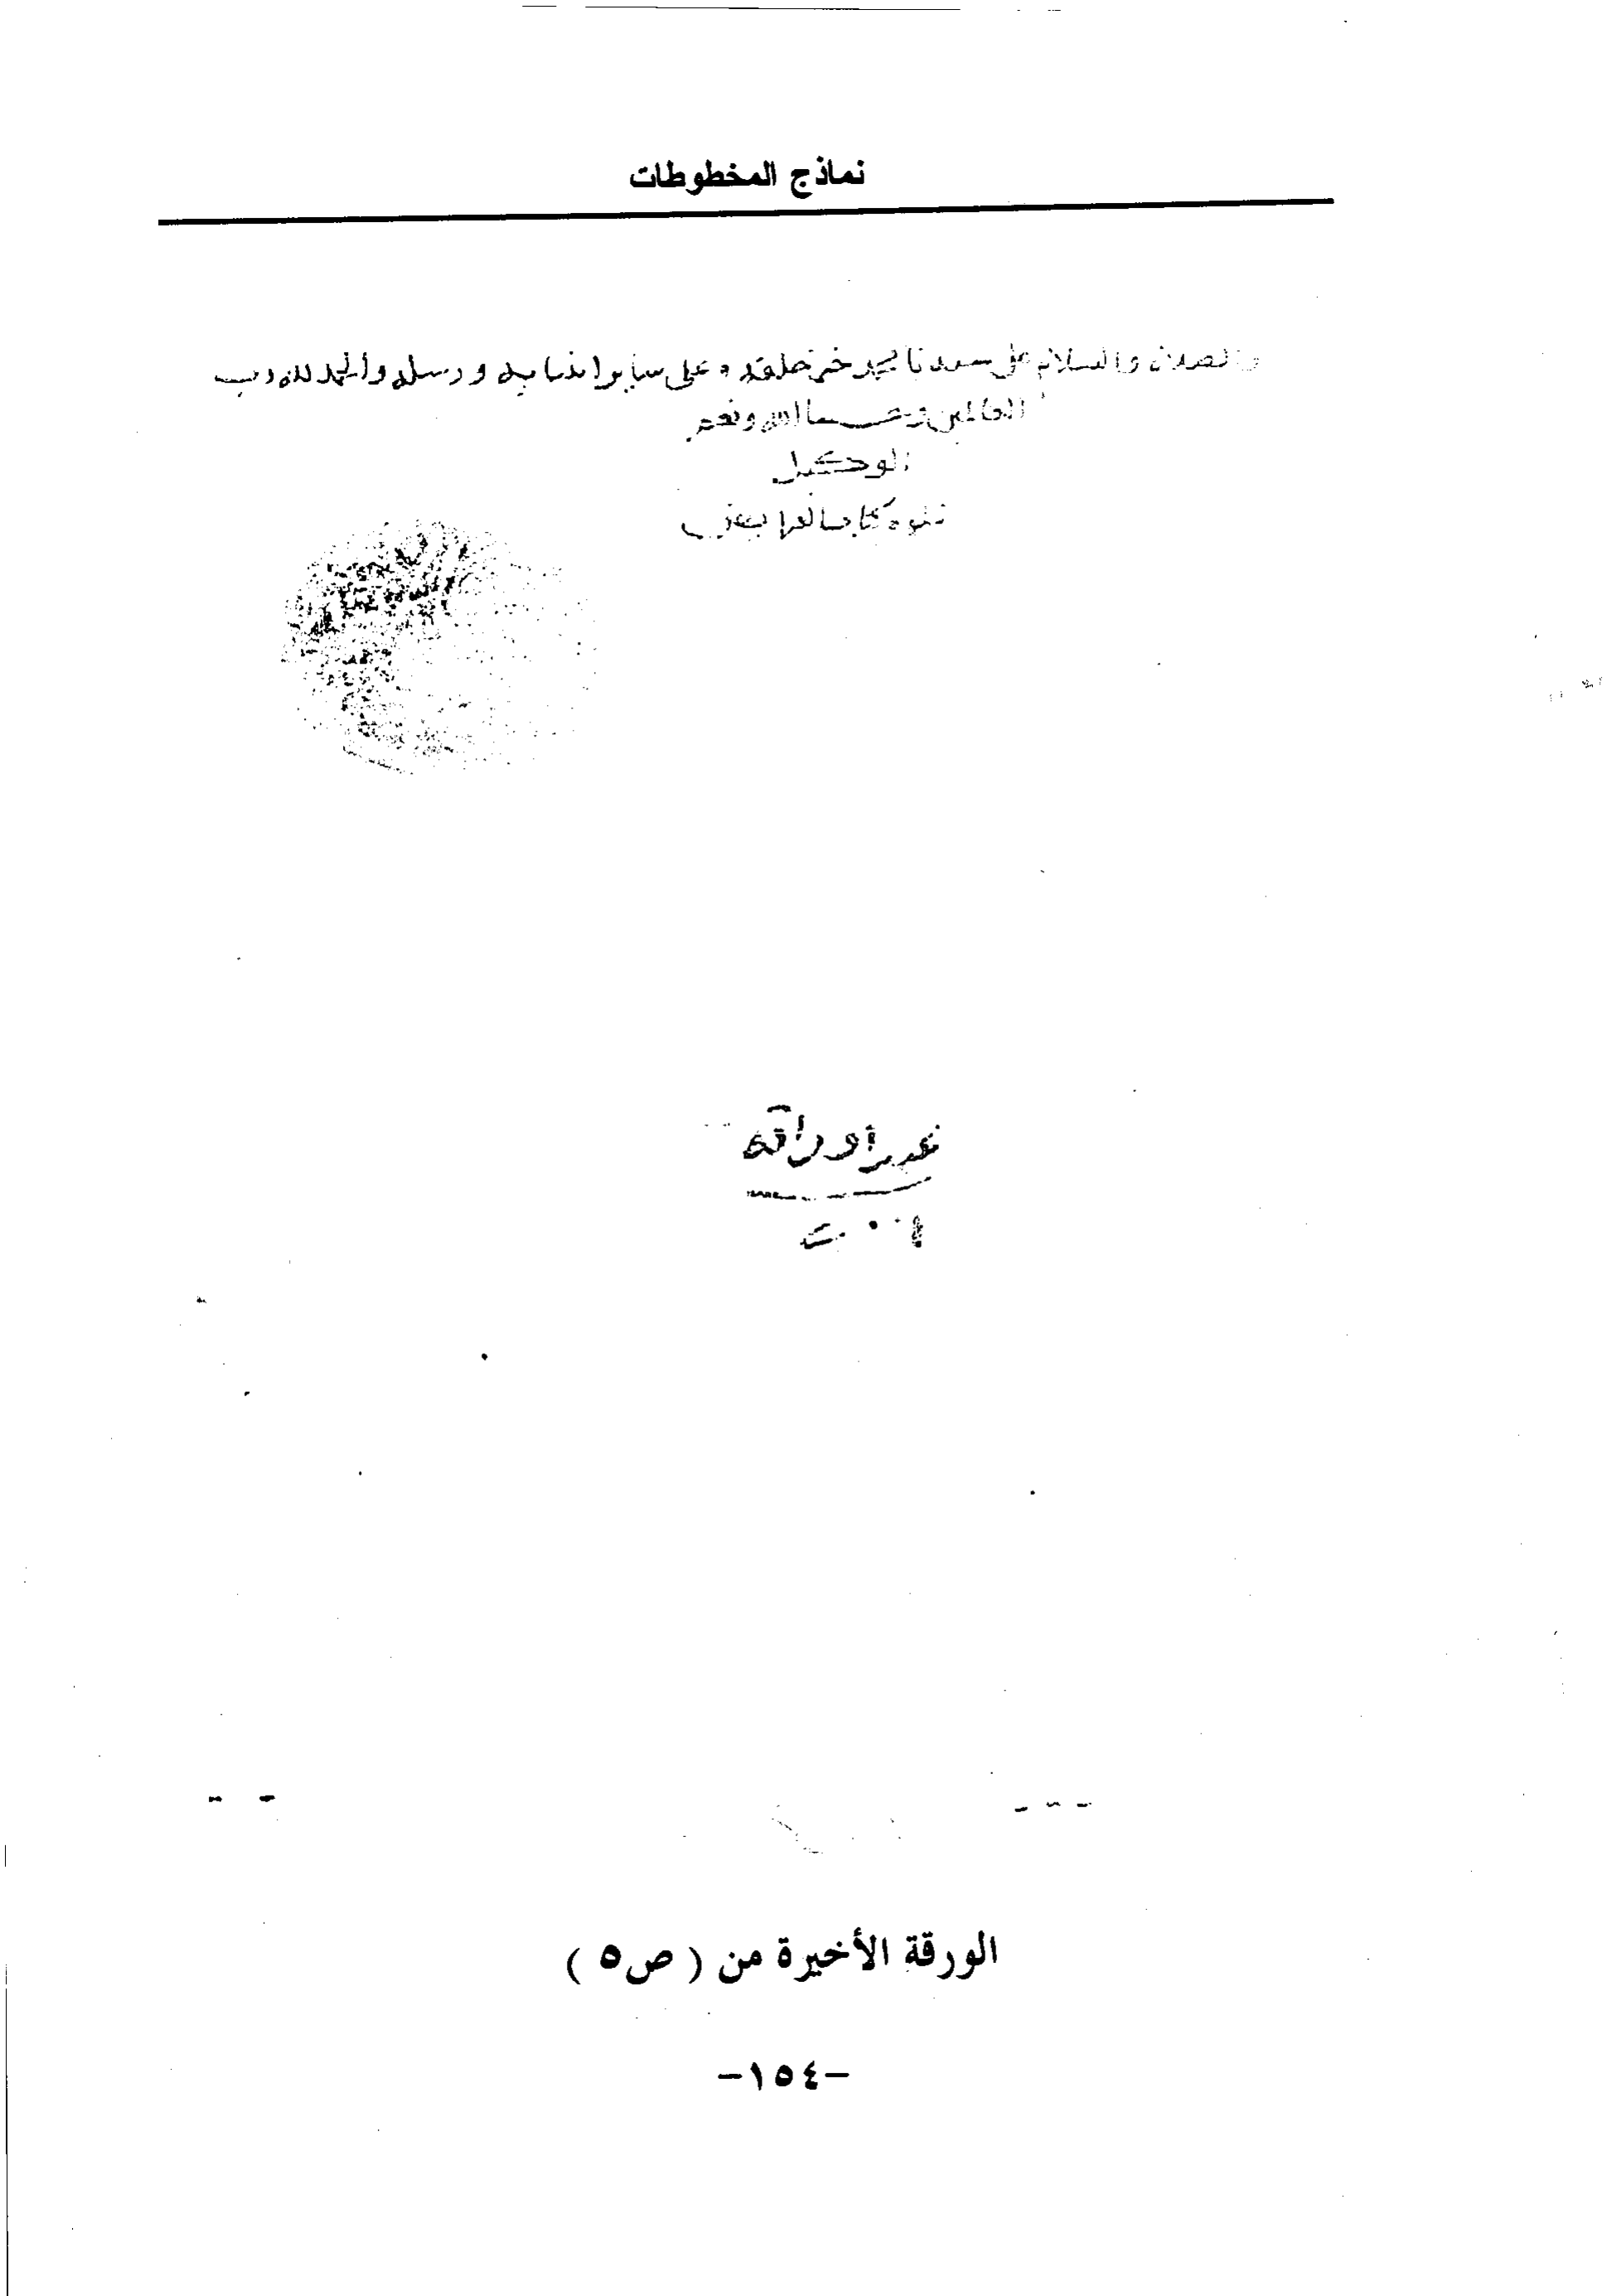 نماذج المخطوطات
والصلاة والسلام على سيدنا محمد خير خلقه وعلى سائر انبيايه ورسله والحمد لله رب
العالمين وحسبنا الله ونعم
الوكيل
يتلوه كتاب الفرايض
عدد اوراقه
الورقة الأخيرة من ( ص٥ )
-١٥٤-